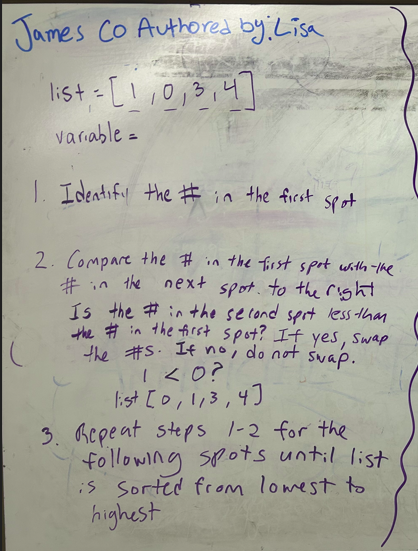 James Co Authored by: Lisa
list = [1, 0, 3, 4]
variable =
1. Identify the # in the first spot
2. Compare the # in the first spot with the
# in the next spot to the right
Is the # in the second spot less than
the # in the first spot? If yes, swap
the #s. If no, do not swap.
1 < 0?
list [0, 1, 3, 4]
3. Repeat steps 1-2 for the
following spots until list
is sorted from lowest to
highest